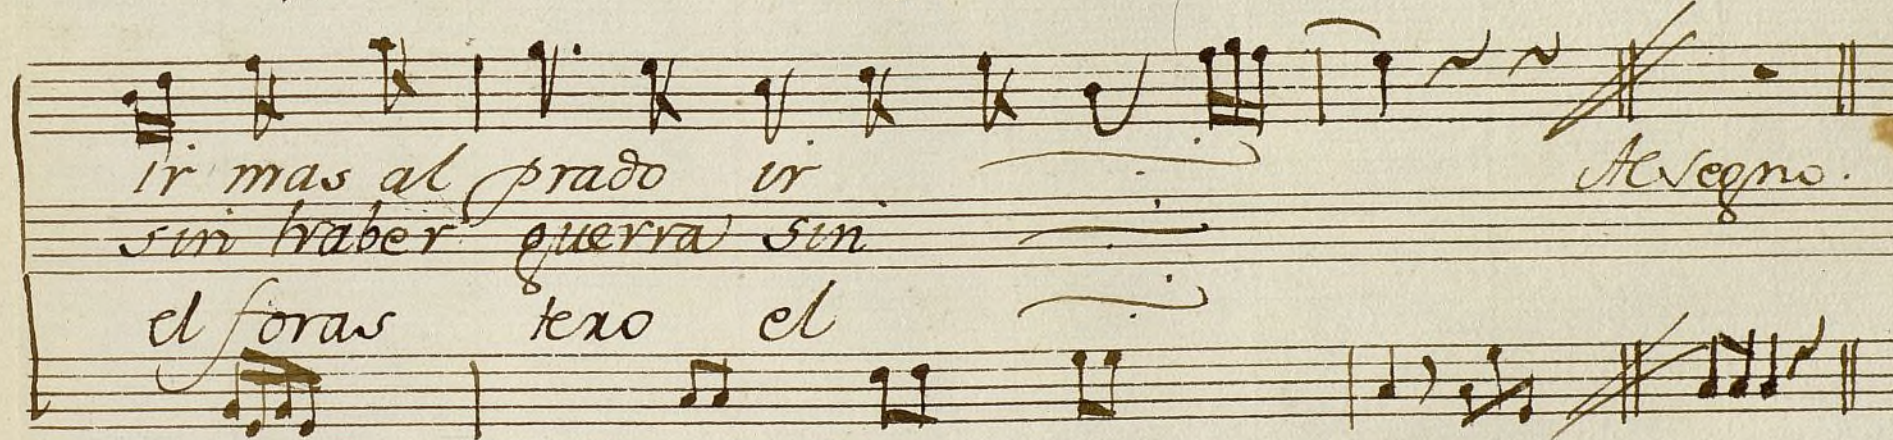 ir mas al prado ir Al segno.
sin traber guerra sin
el foras tero el